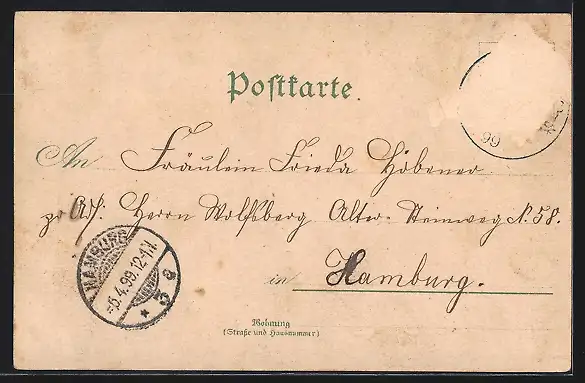 Postkarte
An Fräulein Frieda Höbener
Herrn Wolfsberg Alter-Steinweg N. 58.
in Hamburg.
Wohnung
(Straße und Hausnummer)
HAMBURG
6.4.99.12-1N.
99